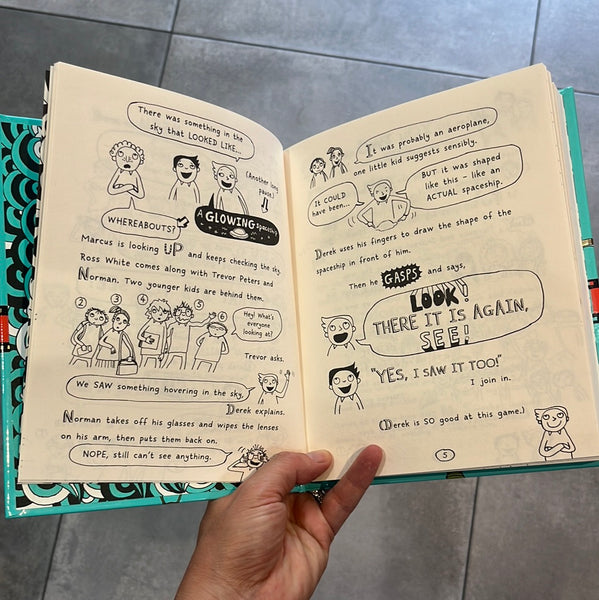 There was something in the
sky that LOOKED LIKE...
(Another long
pause)
WHEREABOUTS?
A GLOWING spaceship
Marcus is looking UP and keeps checking the sky.
Ross White comes along with Trevor Peters and
Norman. Two younger kids are behind them.
2 3 4 5 6
Hey! What's
everyone
looking at?
Trevor asks.
We SAW something hovering in the sky,
Derek explains.
Norman takes off his glasses and wipes the lenses
on his arm, then puts them back on.
NOPE, still can't see anything.
It was probably an aeroplane,
one little kid suggests sensibly.
It COULD
have been...
BUT it was shaped
like this - like an
ACTUAL spaceship.
Derek uses his fingers to draw the shape of the
spaceship in front of him.
Then he GASPS and says,
LOOK!
THERE IT IS AGAIN,
SEE!
"YES, I SAW IT TOO!"
I join in.
(Derek is SO good at this game.)
5